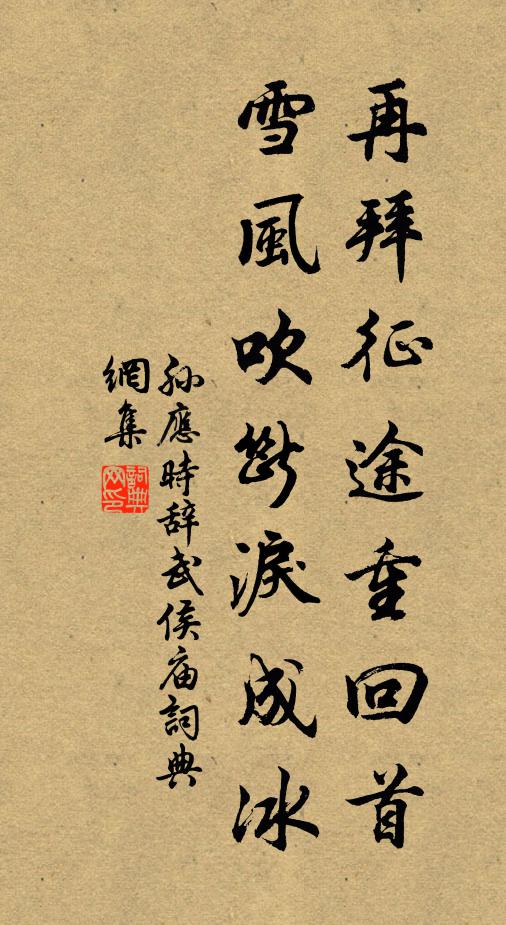 再拜征途重回首
雪風吹斷淚成冰
孙應時辞武侯庙詞典
網集
詞典
网印